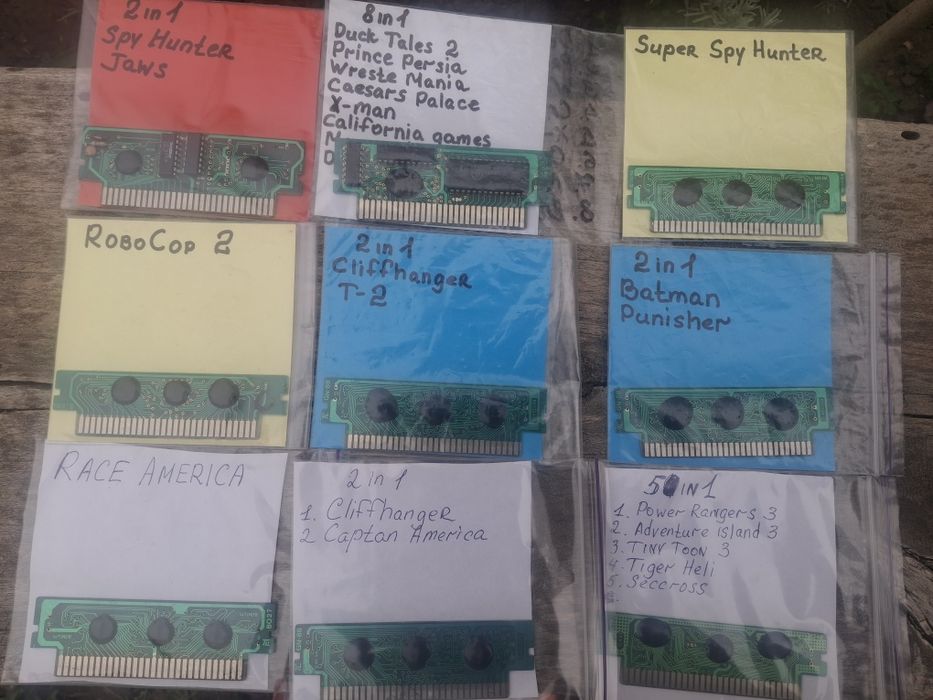 2 in 1
Spy Hunter
Jaws
8 in 1
Duck Tales 2
Prince Persia
Wreste Mania
Caesars Palace
X-man
California games
Super Spy Hunter
RoboCop 2
2 in 1
Cliffhanger
T-2
2 in 1
Batman
Punisher
RACE AMERICA
2 in 1
1. Cliffhanger
2 Captan America
5 IN 1
1. Power Rangers 3
2. Adventure island 3
3. TINY TOON 3
4. Tiger Heli
5. Seccross